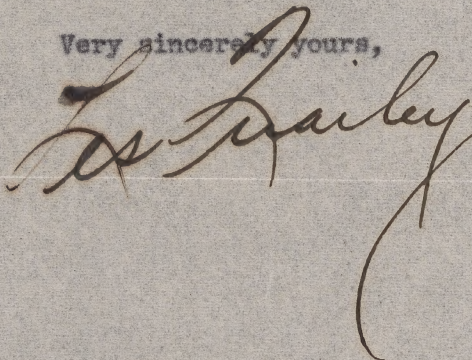 Very sincerely yours,
Les Quailey